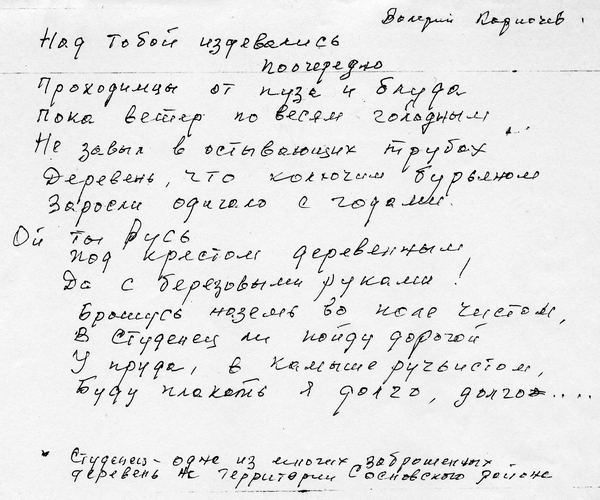 Валерий Карпачев.
Над тобой издевались
поочередно
Проходимцы от пуза и блуда
Пока ветер по весям голодным
Не завыл в остывающих трубах
Деревень, что колючим бурьяном
Заросли одичало с годами.
Ой ты Русь
Под крестом деревенным,
Да с березовыми руками!
Брошусь наземь во поле чистом,
В Студенец ли пойду дорогой
У пруда, в камыше ручьистом,
Буду плакать я долго, долго....
* Студенец - одна из многих заброшенных
деревень на территории Сосновского района